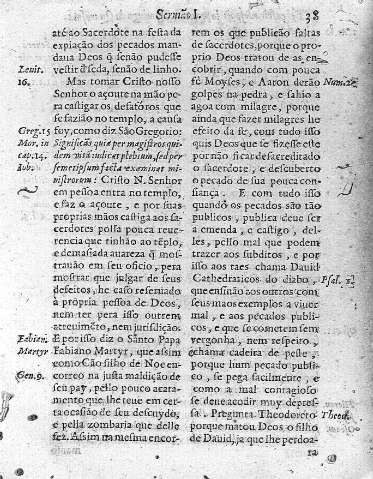 Sermão I. 38
até ao Sacerdote na festa da
expiação dos pecados man-
daua Deos q̃ senão pudesse
vestir d̃ seda, senão de linho.
Leuit. 16.
Mas tomar Cristo nosso
Senhor o açoute na mão pe-
ra castigar os desaforos que
se fazião no templo, a causa
foy, como diz São Gregorio:
Greg. 15
Mor. in
cap. 14.
Iob.
Significãs quia per magistros qui-
dem vita iudicat plebium, sed per
semetipsum facta examinat mi-
nistrorum: Cristo N. Senhor
em pessoa entra no templo,
e faz o açoute, e por suas
proprias mãos castiga aos sa-
cerdotes polla pouca reue-
rencia que tinhão ao tẽplo,
e demasiada auareza q̃ mos-
trauão em seu oficio, pera
mostrar que julgar de seus
defeitos, he caso resernado
à propria pessoa de Deos,
nem ter pera isso outrem
atreuimẽto, nem jurisdição.
Fabien.
Martyr
E por isso diz o Santo Papa
Fabiano Martyr, que assim
como Cão filho de Noe en-
Gen. 9.
correo na justa maldição de
seu pay, pello pouco acata-
mento que lhe teue em cer-
ta ocasião de seu desnudo,
e pella zombaria que delle
fez. Assim na mesma encor-
rem os que publicão faltas
de sacerdotes, porque o pro-
prio Deos tratou de as en-
cobrir, quando com pouca
Num. 20.
fé Moyses, e Aaron derão
golpes na pedra, e sahio a
agoa com milagre, porque
ainda que fazer milagres he
efeito da fé, com tudo isso
quis Deos que se fizesse este
por não ficar desacreditado
o sacerdote, e descuberto
o pecado de sua pouca con-
fiança. E com tudo isso
quando os pecados são tão
publicos, publica deue ser
a emenda, e castigo, del-
les, pello mal que podem
trazer aos subditos, e por
isso aos taes chama Dauid
Psal.
Cathedraticos do diabo,
que ensinão aos outros com
seus maos exemplos a viuer
mal, e aos pecados publi-
cos, e que se cometem sem
vergonha, nem respeito,
chama cadeira de peste,
porque hum pecado publi-
co, se pega facilmente, e
como a mal contagioso
se deue acodir muy depres-
Theod.
sa. Pregunta Theodoreto
porque matou Deos o filho
de Dauid, ja que lhe perdoa-
ra